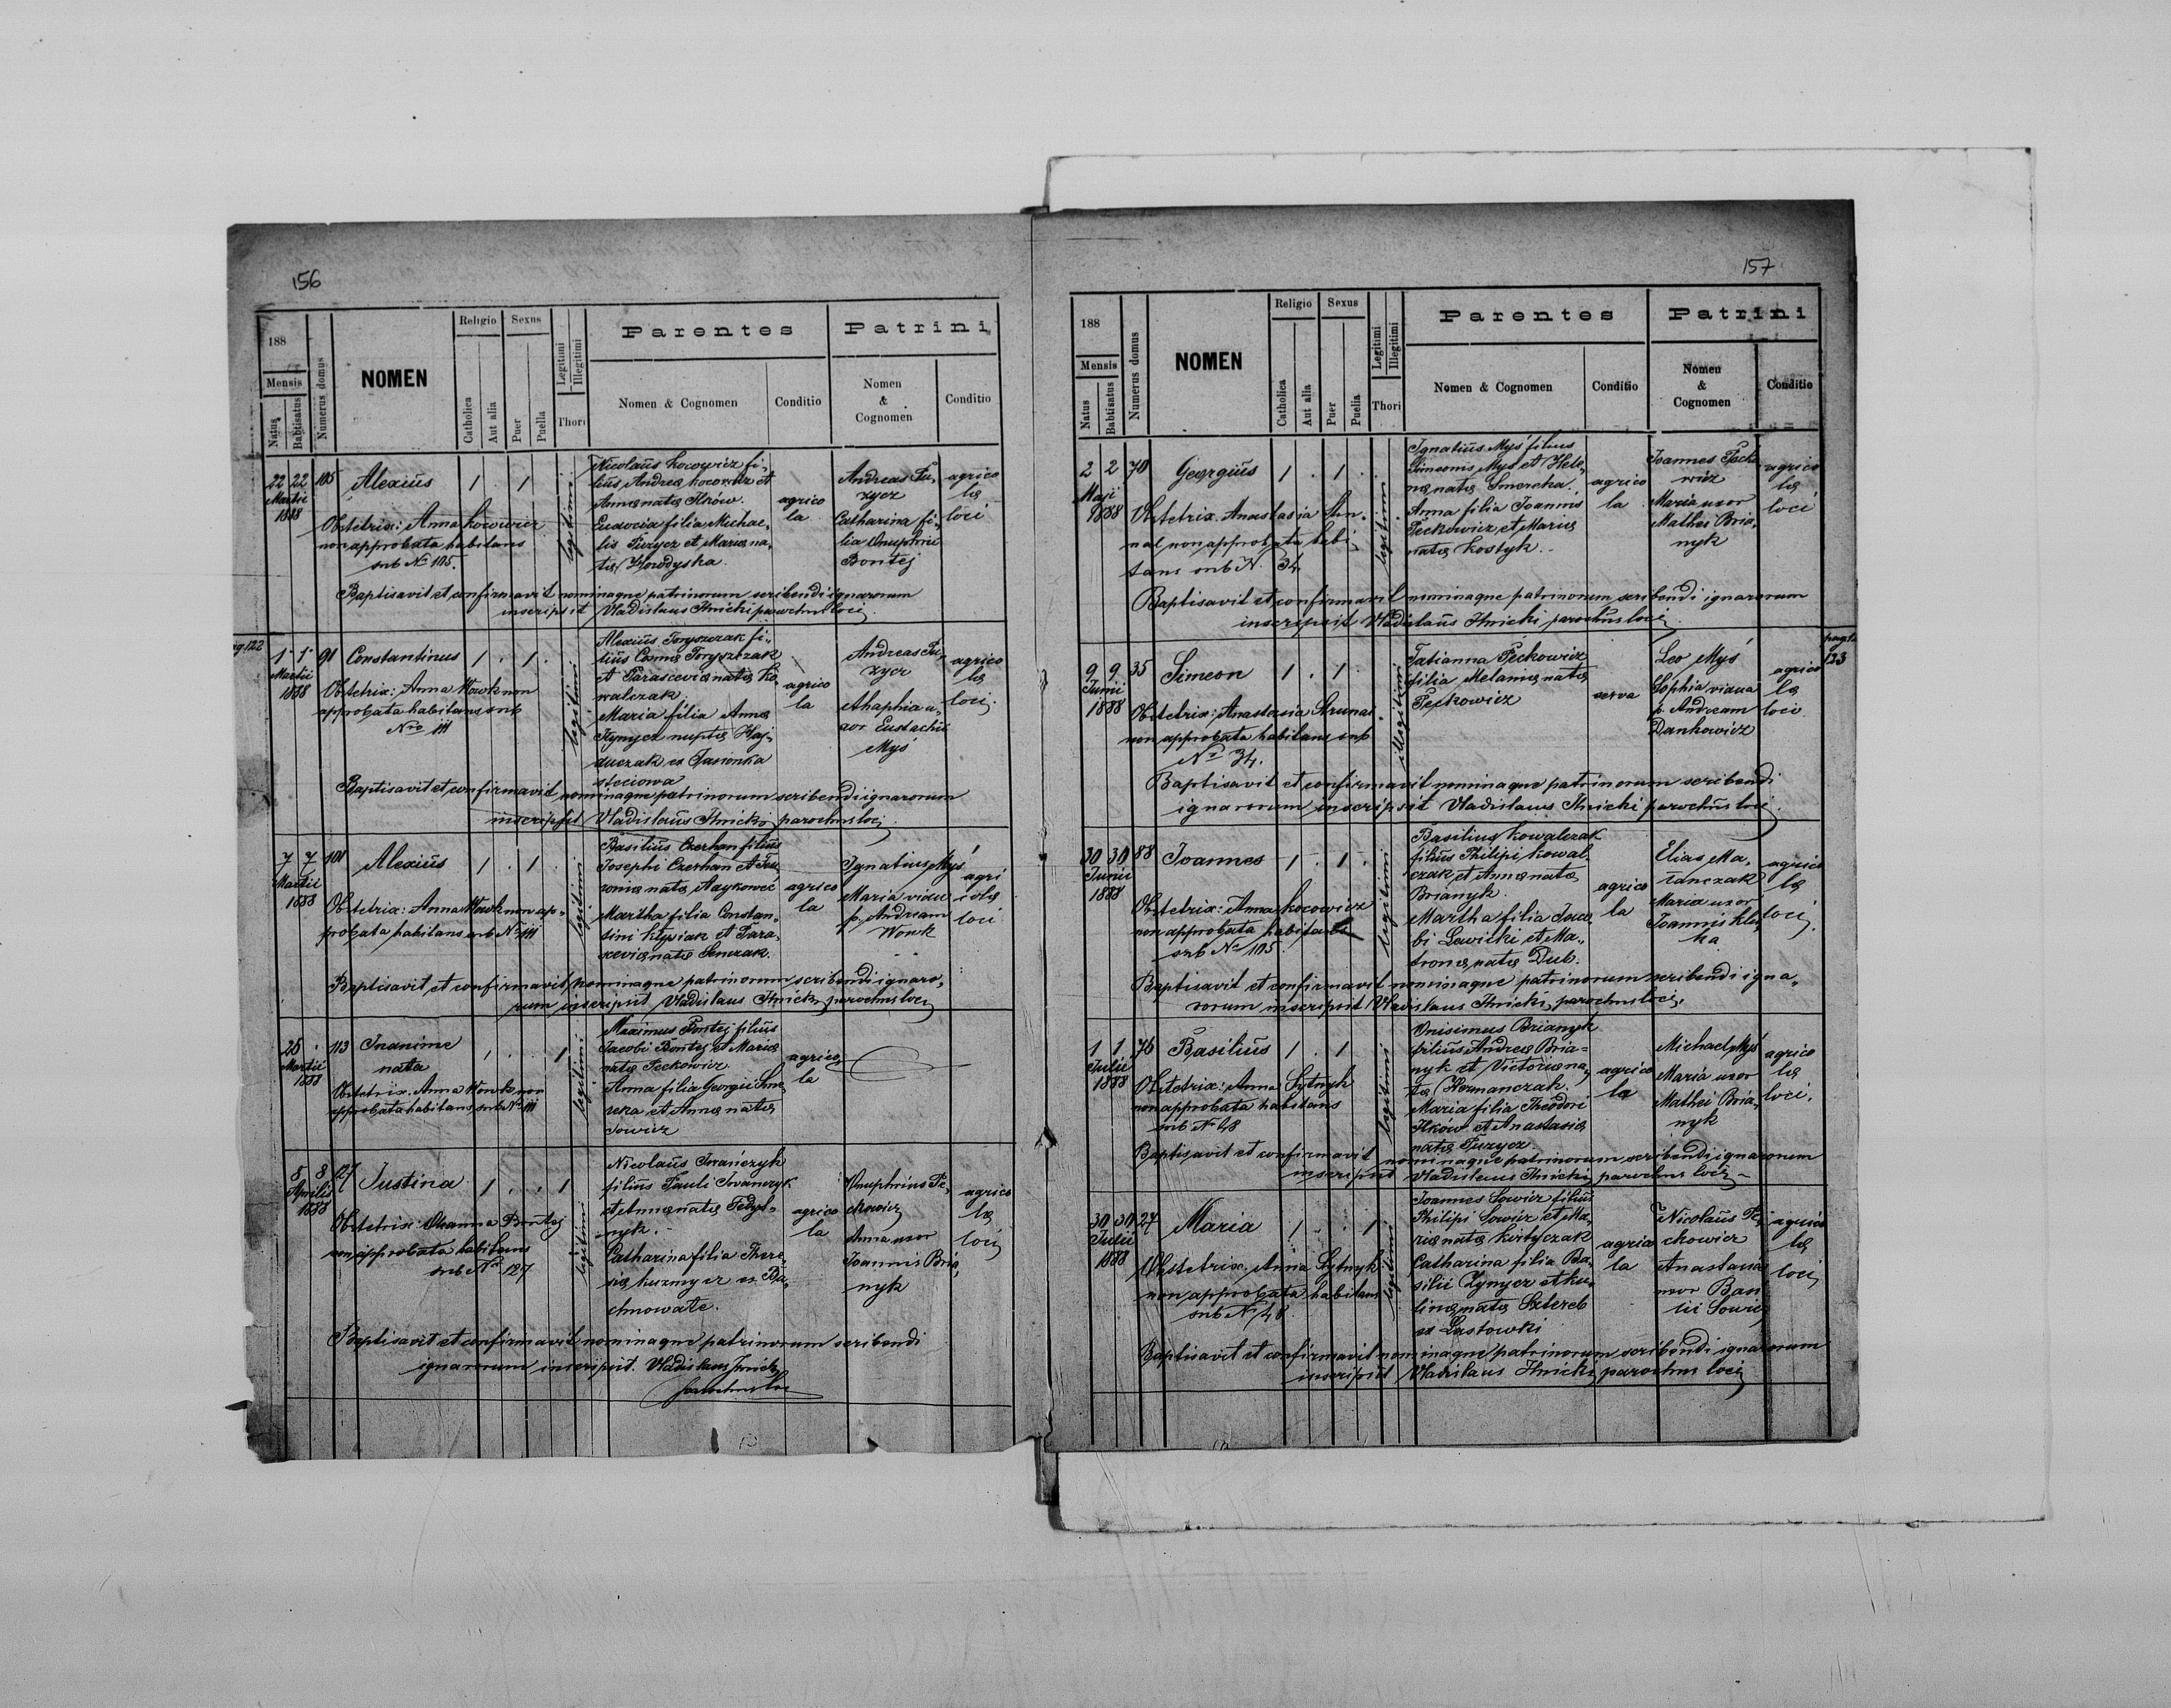 156
188
Mensis
Natus
Babtisatus
Numerus domus
NOMEN
Religio
Catholica
Aut alia
Sexus
Puer
Puella
Legitimi
Illegitimi
Thori
Parentes
Nomen & Cognomen
Conditio
Patrini
Nomen
&
Cognomen
Conditio
22 22 105 Alexiŭs 1 . 1 .
Martii
1888
Obstetrix: Anna Kocowicz
non approbata habitans
sub No 105.
legitimi
Nicolaŭs Kocowicz fi-
liŭs Andreæ Kocowicz et
Annæ natæ Ilków.
Eudocia filia Michae-
lis Pŭzycz et Mariæ na-
tæ Howdyska.
agrico
la
Andreas Pu-
zycz
Catharina fi-
lia Onuphrii
Bontej
agrico
læ
loci
Baptisavit et confirmavit nominaque patrinorum scribendi ignarorum
inscripsit Vladislaus Ilnicki parochus loci
pag. 122
1 1 91 Constantinus 1 . 1 .
Martii
1888
Obstetrix: Anna Wowk non
approbata habitans sub
No 111
legitimi
Alexiŭs Toryszczak fi-
liŭs Cosmæ Toryszczak
et Parasceviæ natæ Ko-
walczak.
Maria filia Annæ
Hynycz nuptæ Haj-
duczak ex Jasionka
steciowa
agrico
la
Andreas Pu-
zycz
Ahaphia u-
xor Eustachii
Myś
agrico
læ
loci.
Baptisavit et confirmavit nominaque patrinorum scribendi ignarorum
inscripsit Vladislaŭs Ilnicki parochus loci
7 7 101 Alexiŭs 1 . 1 .
Martii
1888
Obstetrix: Anna Wowk non ap-
probata habitans sub No 111
legitimi
Basiliŭs Czerhan filiŭs
Josephi Czerhan et
natæ
Martha filia Constan-
tini Klysiak et Para-
sceviæ natæ Senczak.
agrico
la
Ignatius Myś
Maria vidua
p. Andream
Wowk
agri
colæ
loci
Baptisavit et confirmavit nominaque patrinorum scribendi ignaro-
rum inscripsit Vladislaus Ilnicki parochus loci
26 . 113 Inanime 1 . . 1
Martii
1888
nata
Obstetrix. Anna Wowk non
approbata habitans sub No 111
legitimi
Maximus Bontej filiŭs
Jacobi Bontej et Mariæ
natæ Peckowicz
Anna filia Georgii Sme-
reka et Annæ natæ
Sowicz
agrico
la
8 8 127 Justina 1 . . 1
Aprilis
1888
Obstetrix: Oxanna Bontej
non approbata habitans
sub No 127
legitimi
Nicolaŭs Iwańczyk
filiŭs Pauli Iwańczyk
et Annæ natæ Fedyl-
nyk.
Catharina filia There-
siæ Kuzmycz ex Ba-
chnowate.
agrico
la
Onuphrius Pe-
ckowicz
Anna uxor
Joannis Bria-
nyk
agrico
læ
loci
Baptisavit et confirmavit nominaque patrinorum scribendi
ignarorum inscripsit. Vladislaus Ilnicki
parochus loci
157
188
Mensis
Natus
Babtisatus
Numerus domus
NOMEN
Religio
Catholica
Aut alia
Sexus
Puer
Puella
Legitimi
Illegitimi
Thori
Parentes
Nomen & Cognomen
Conditio
Patrini
Nomen
&
Cognomen
Conditio
2 2 70 Georgiŭs 1 . 1 .
Maji
1888
Obstetrix. Anastasia Stru-
nal non approbata habi-
tans sub N. 34.
legitimi
Ignatiŭs Myś filius
Simeonis Myś et Hele-
næ natæ Smereka.
Anna filia Joannis
Peckowicz et Mariæ
natæ Kostyk.
agrico
la
Joannes Pecko-
wicz
Maria uxor
Mathei Bria-
nyk
agrico
læ
loci
Baptisavit et confirmavit nominaque patrinorum scribendi ignarorum
inscripsit Vladislaŭs Ilnicki parochŭs loci
pag. 123
9 9 35 Simeon 1 . 1 .
Junii
1888
Obstetrix: Anastasia Strunal
non approbata habitans sub
No 34.
illegitimi
Tatianna Peckowicz
filia Melaniæ natæ
Peckowicz
serva
Leo Myś
Sophia vidua
p. Andream
Dankowicz
agrico
læ
loci
Baptisavit et confirmavit nominaque patrinorum scribendi
ignarorum inscripsit Vladislaus Ilnicki parochŭs loci
30 30 88 Joannes 1 . 1 .
Junii
1888
Obstetrix: Anna Kocowicz
non approbata habitans
sub No 105
legitimi
Basilius Kowalczak
filiŭs Philipi Kowal-
czak et Annæ natæ
Brianyk.
Martha filia Jaco-
bi Lewicki et Ma-
tronæ natæ Dub.
agrico
la
Elias Ma-
tanczak
Maria uxor
Joannis
agrico
læ
loci.
Baptisavit et confirmavit nominaque patrinorum scribendi igna-
rorum inscripsit Vladislaus Ilnicki parochus loci.
1 1 76 Basiliŭs 1 . 1 .
Julii
1888
Obstetrix: Anna Sytnyk
non approbata habitans
sub No 48
legitimi
Onisimus Brianyk
filiŭs Andreæ Bria-
nyk et Victoriæ na-
tæ Hermanczak.
Maria filia Theodori
Ilków et Anastasiæ
natæ Puzycz
agrico
la
Michael Myś
Maria uxor
Mathei Bria-
nyk
agrico
læ
loci.
Baptisavit et confirmavit nominaque patrinorum scribendi ignarorum
inscripsit Vladislaus Ilnicki parochus loci
30 30 27 Maria 1 . . 1
Julii
1888
Obstetrix. Anna Sytnyk
non approbata habitans
sub No 48.
legitimi
Joannes Sowicz filiŭs
Philipi Sowicz et Ma-
riæ natæ Kirtyczak
Catharina filia Ba-
silii Zynycz et Ku-
linæ natæ Sztereb
ex Lastowki
agrico
la
Nicolaŭs Pe-
ckowicz
Anastasia
uxor Basi
lii Sowicz
agrico
læ
loci
Baptisavit et confirmavit nominaque patrinorum scribendi ignarorum
inscripsit Vladislaus Ilnicki parochus loci